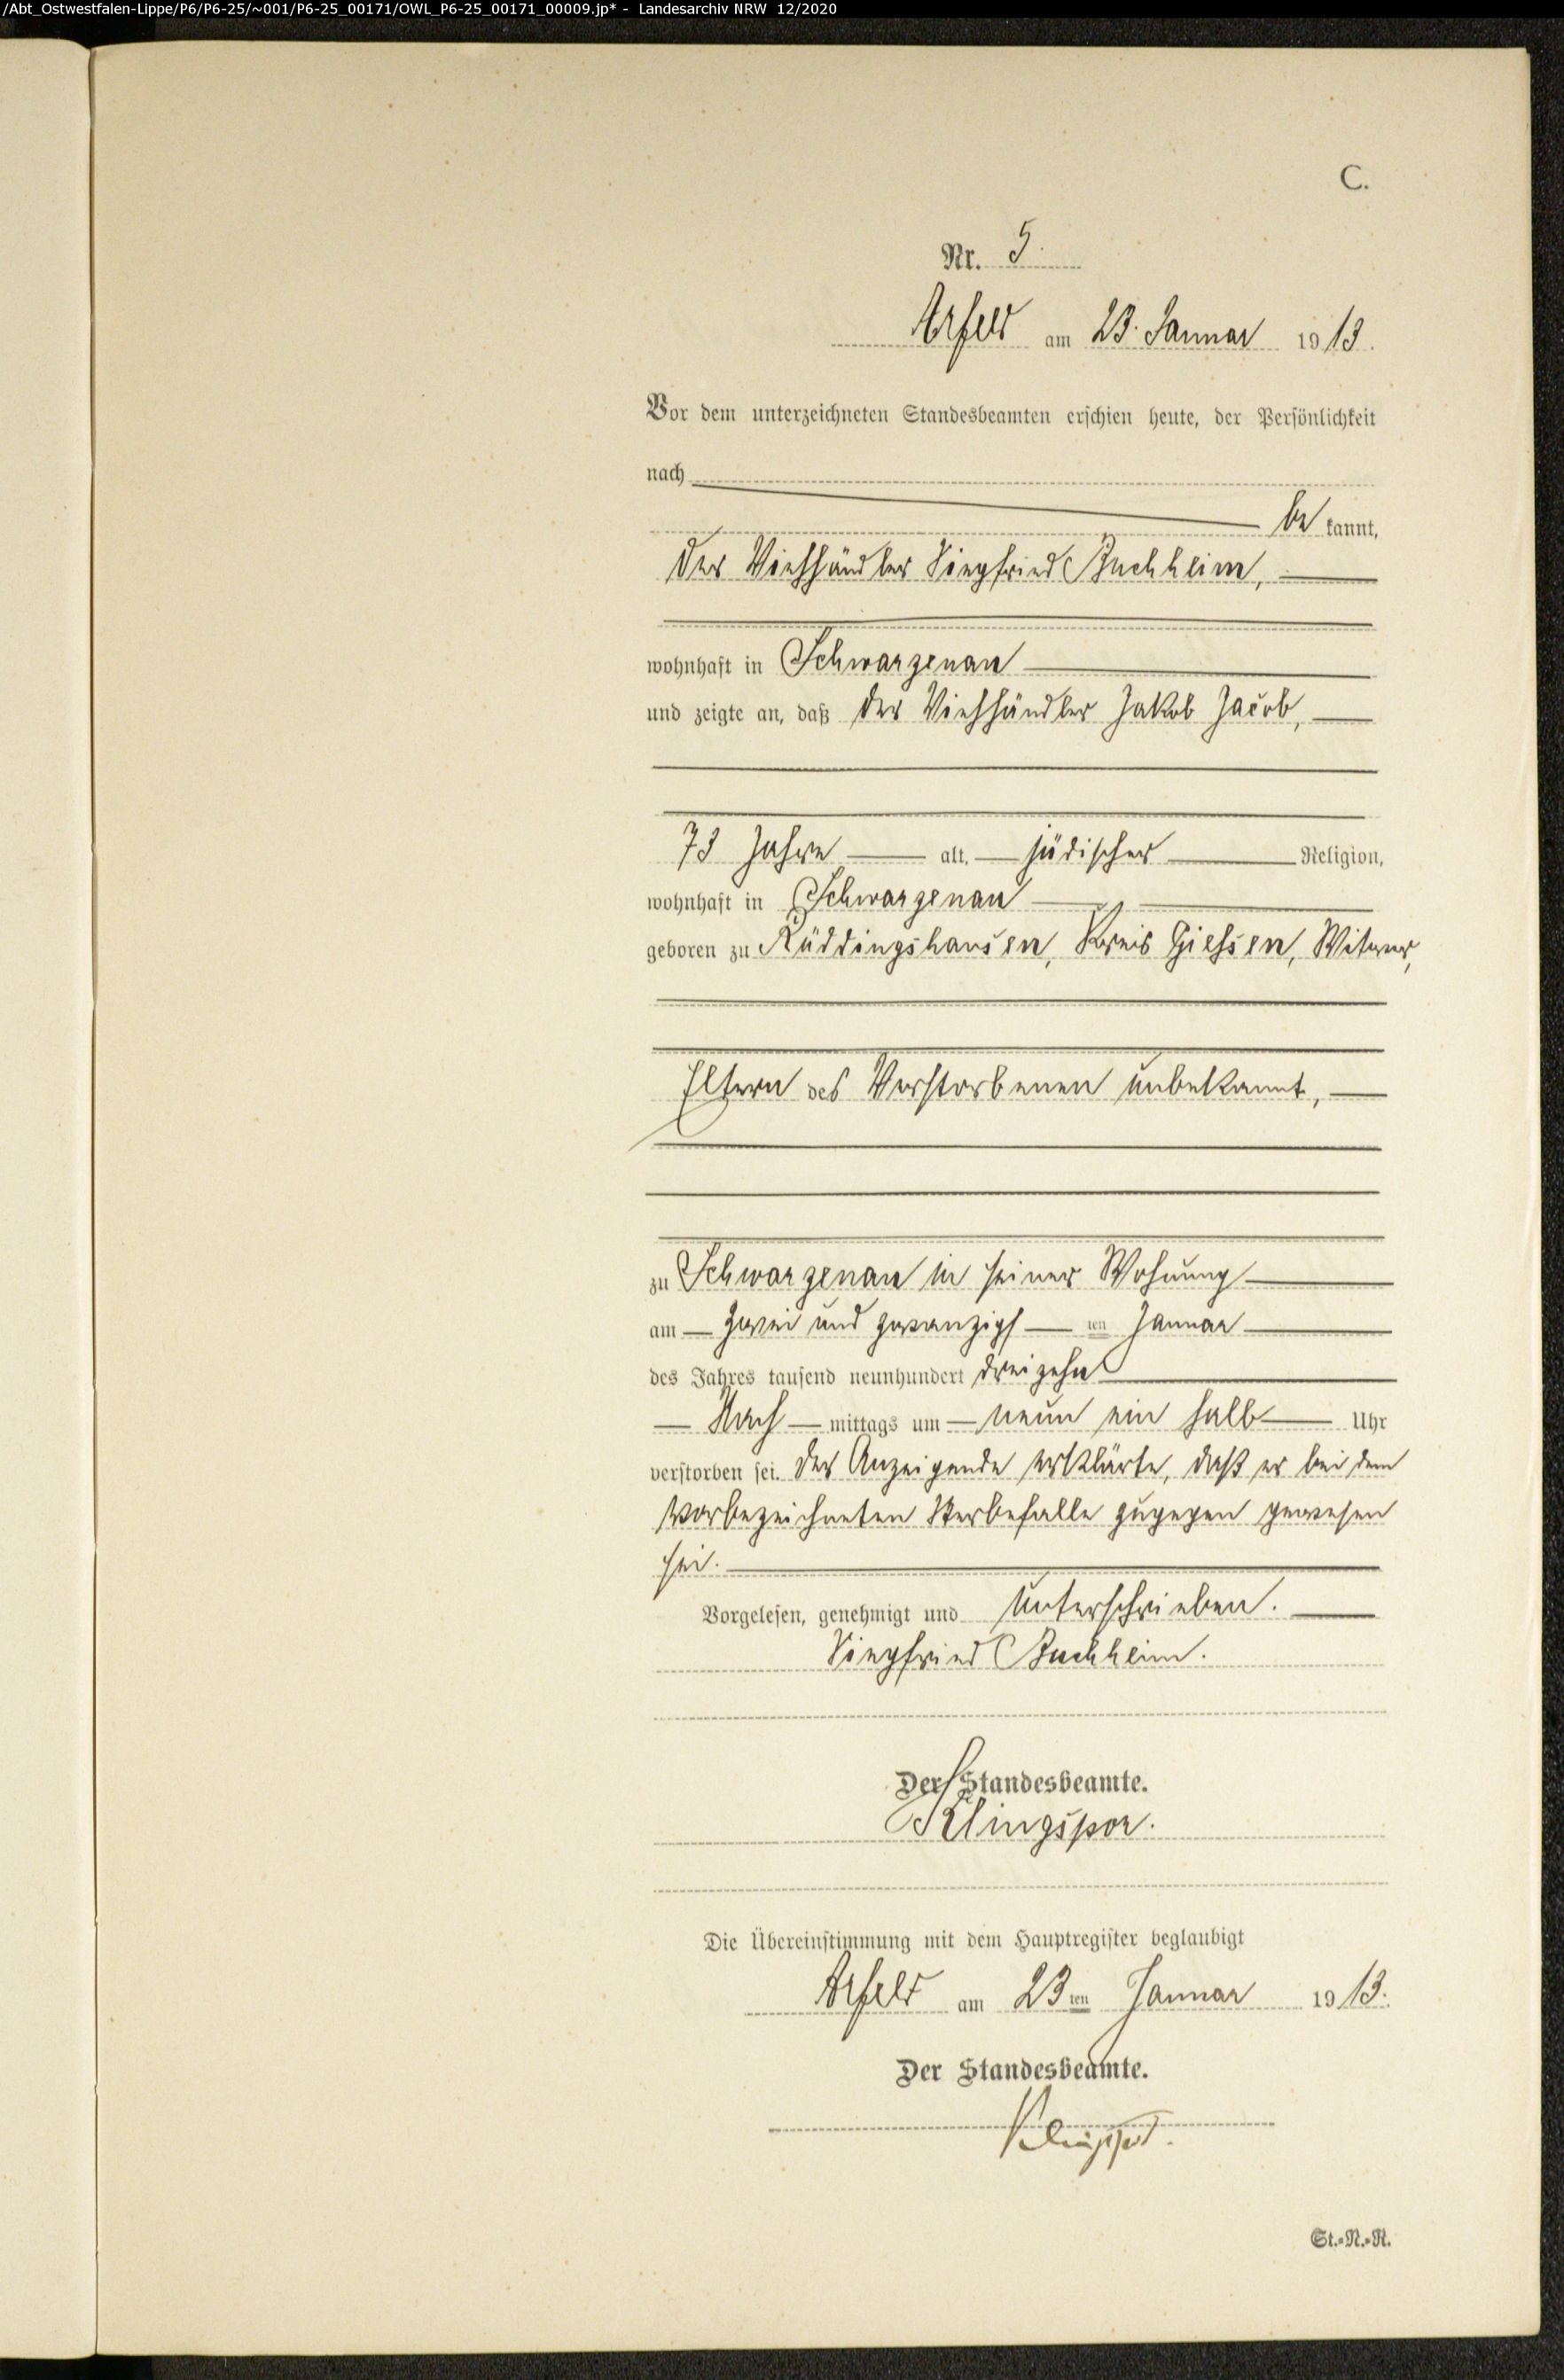 /Abt_Ostwestfalen-Lippe/P6/P6-25/~001/P6-25_00171/OWL_P6-25_00171_00009.jp* - Landesarchiv NRW 12/2020
C.
Nr. 5.
Arfeld am 23. Januar 1913.
Vor dem unterzeichneten Standesbeamten erschien heute, der Persönlichkeit
nach
be kannt,
der Viehhändler Siegfried Buchheim,
wohnhaft in Schwarzenau
und zeigte an, daß der Viehhändler Jakob Jacob,
73 Jahre alt, jüdischer Religion,
wohnhaft in Schwarzenau
geboren zu Rüddingshausen, Kreis Giessen, Witwer,
Eltern des Verstorbenen unbekannt,
zu Schwarzenau in seiner Wohnung
am zwei und zwanzigsten Januar
des Jahres tausend neunhundert dreizehn
Nach mittags um neun ein halb Uhr
verstorben sei. Der Anzeigende erklärte, daß er bei dem
vorbezeichneten Sterbefalle zugegen gewesen
sei.
Vorgelesen, genehmigt und unterschrieben.
Siegfried Buchheim.
Der Standesbeamte.
Klingspor.
Die Übereinstimmung mit dem Hauptregister beglaubigt
Arfeld am 23ten Januar 1913.
Der Standesbeamte.
Klingspor.
St.-N.-R.